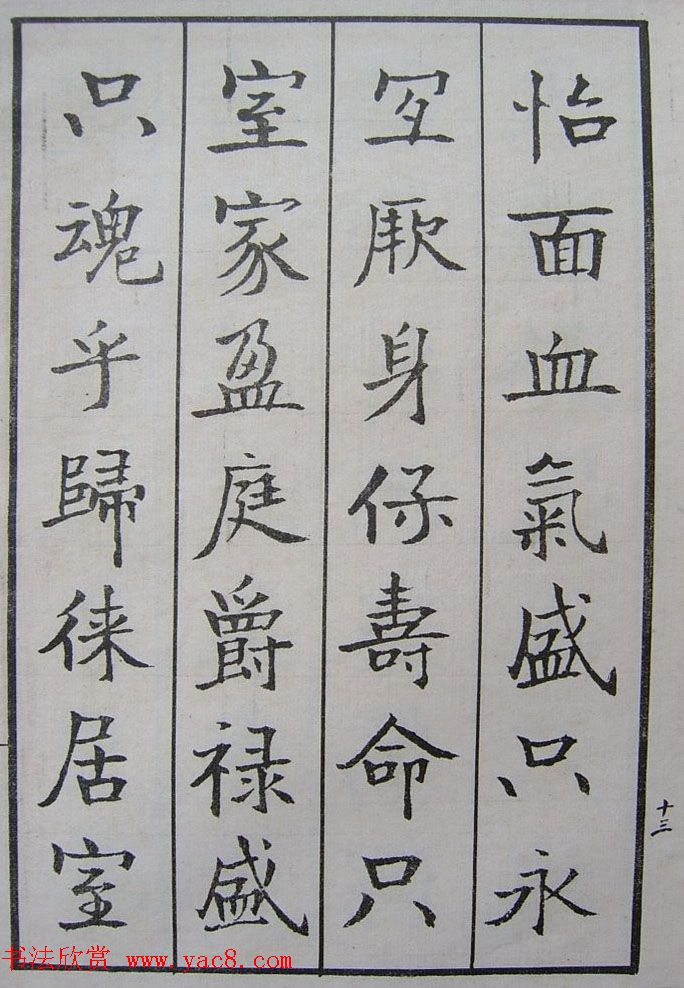 怡面血氣盛只永
宜厥身保壽命只
室家盈庭爵禄盛
只魂乎歸徠居室
十三
书法欣赏 www.yac8.com